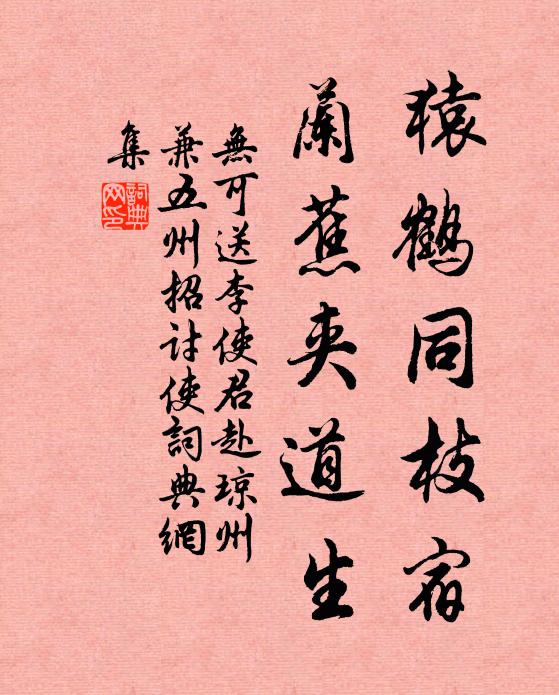 猿鶴同枝宿
蘭蕉夾道生
無可送李使君赴琼州
兼五州招討使詞典網
集
詞典网印